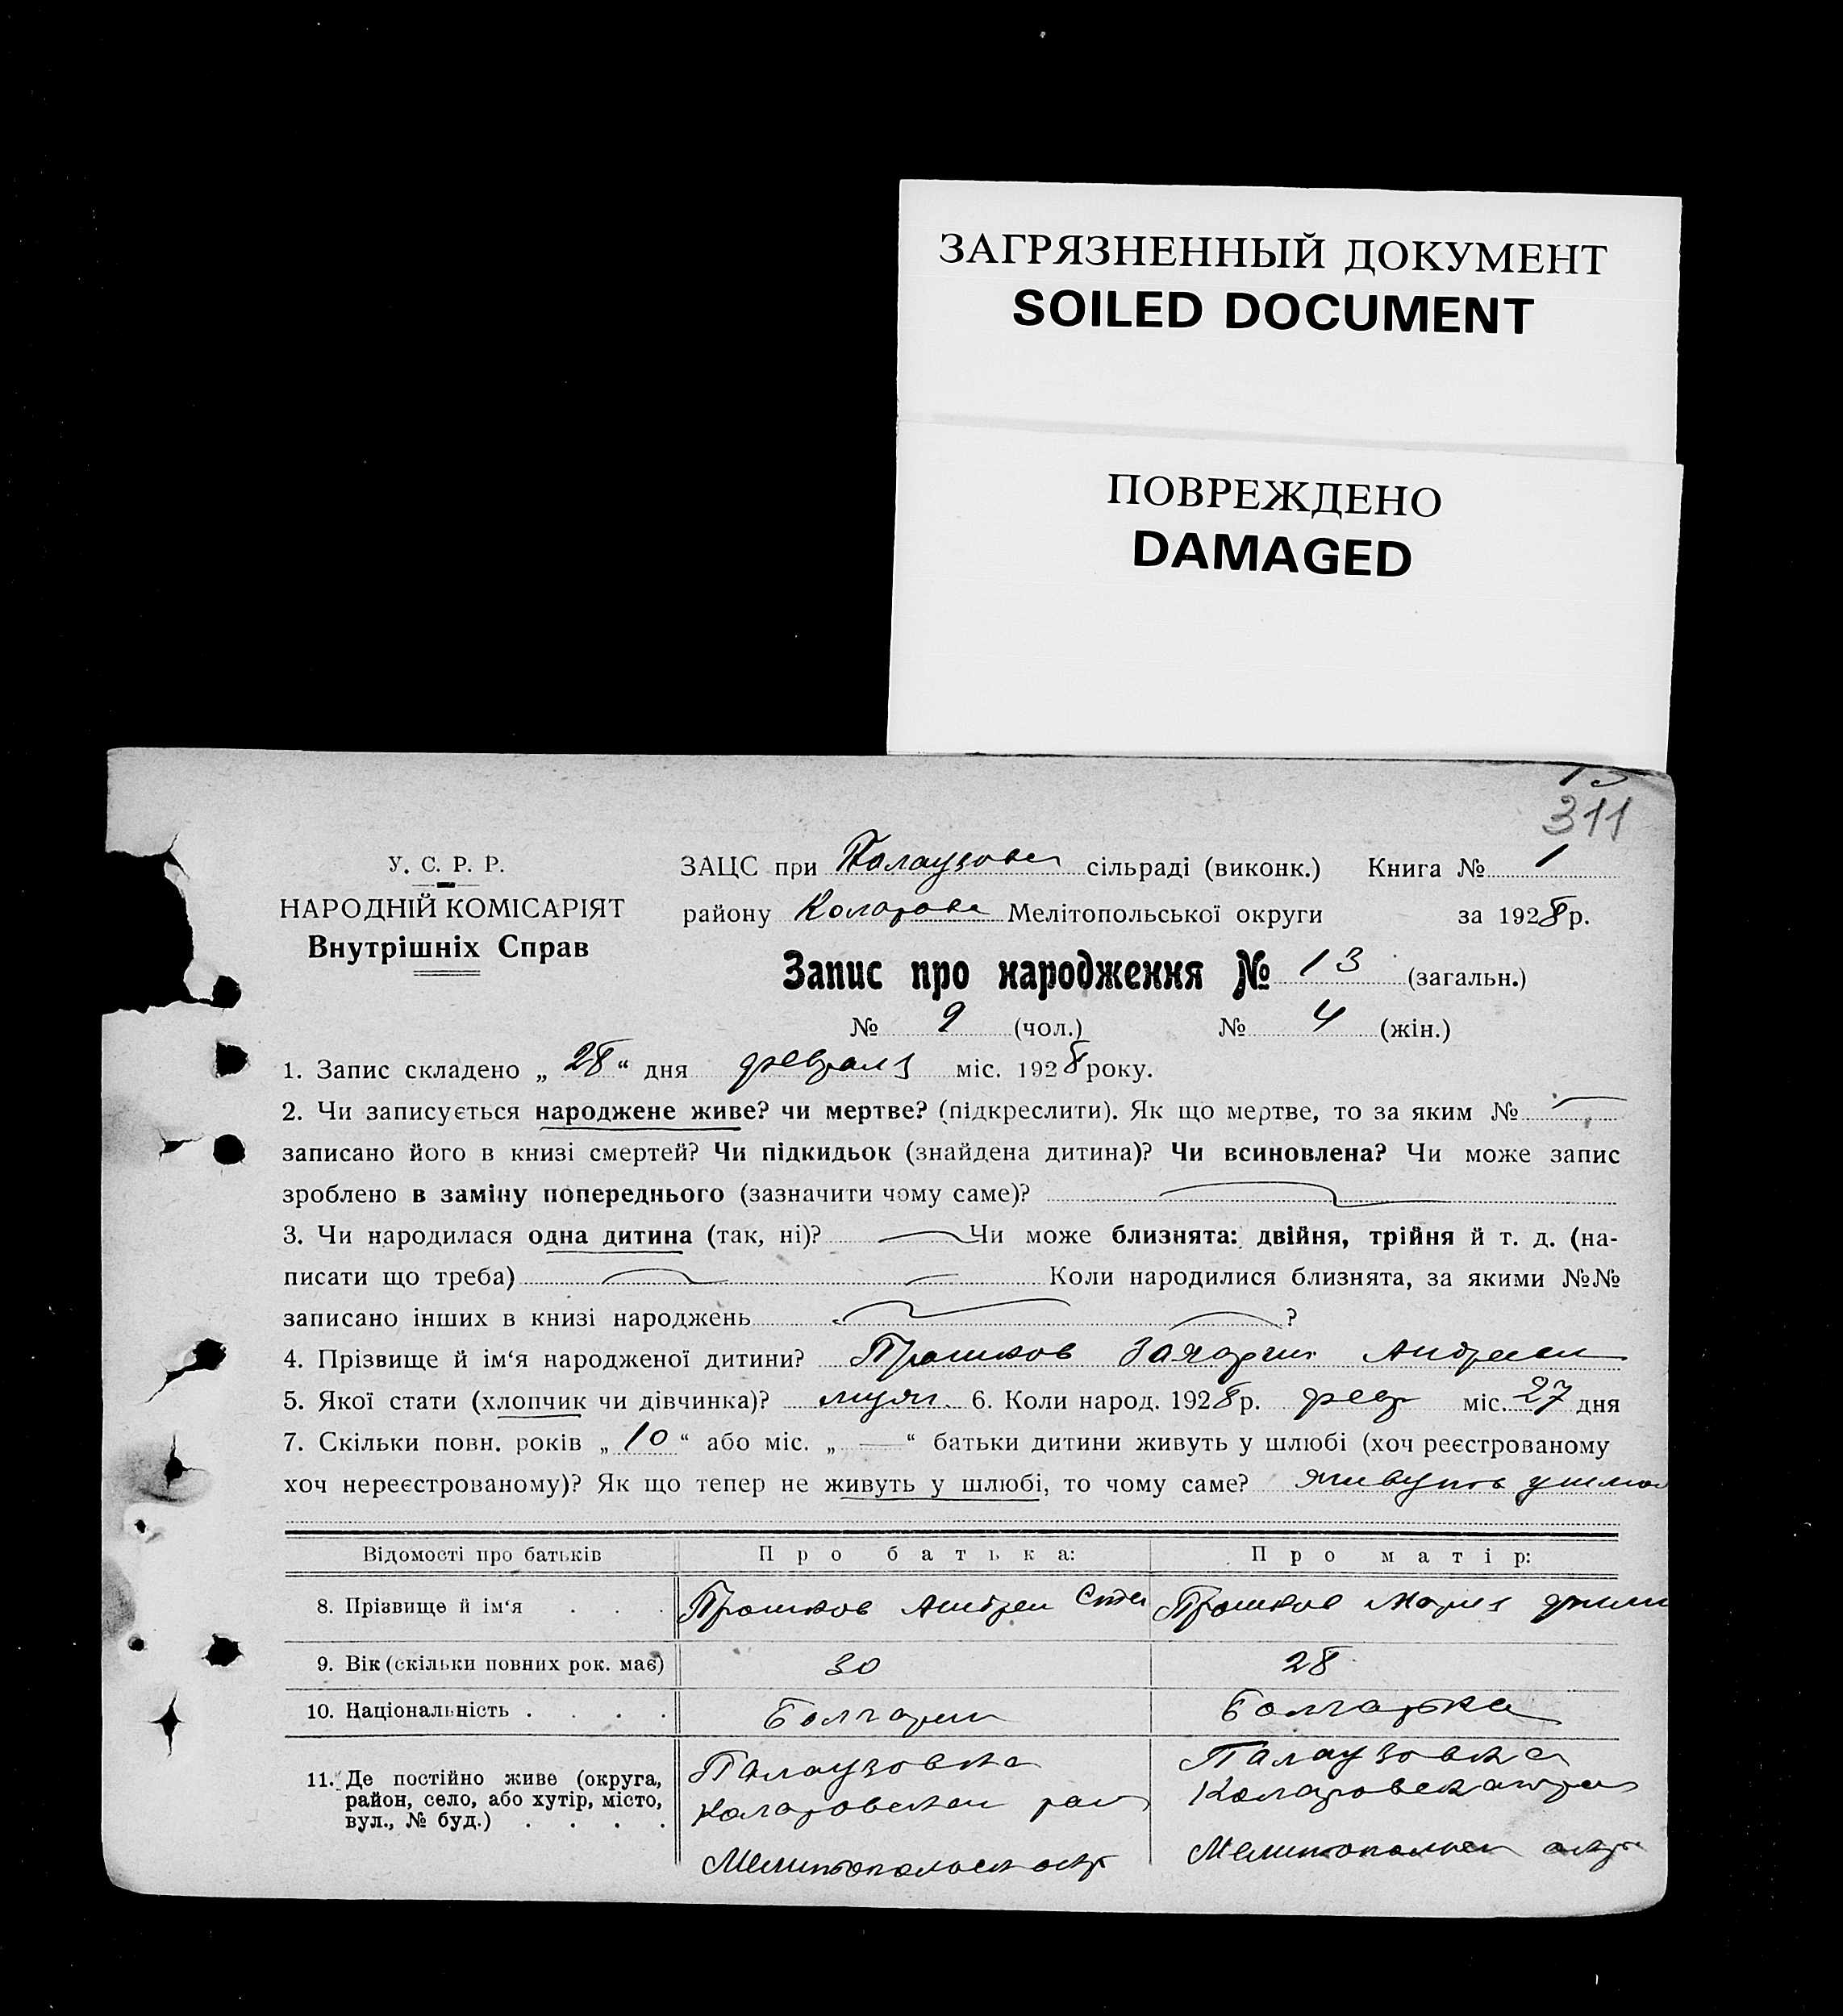 ЗАГРЯЗНЕННЫЙ ДОКУМЕНТ
SOILED DOCUMENT
ПОВРЕЖДЕНО
DAMAGED
311
У. С. Р. Р.
НАРОДНІЙ КОМІСАРІЯТ
Внутрішніх Справ
ЗАЦС при Палаузовск сільраді (виконк.) Книга № 1
району Коларовс Мелітопольської округи за 1928 р.
Запис про народження № 13 (загальн.)
№ 9 (чол.) № 4 (жін.)
1. Запис складено „ 28 “ дня февраля міс. 1928 року.
2. Чи записується народжене живе? чи мертве? (підкреслити). Як що мертве, то за яким №
записано його в книзі смертей? Чи підкидьок (знайдена дитина)? Чи всиновлена? Чи може запис
зроблено в заміну попереднього (зазначити чому саме)?
3. Чи народилася одна дитина (так, ні)? Чи може близнята: двійня, трійня й т. д. (на-
писати що треба) Коли народилися близнята, за якими №№
записано інших в книзі народжень ?
4. Прізвище й ім‘я народженої дитини? Прошков Захарий Андреев
5. Якої стати (хлопчик чи дівчинка)? муж. 6. Коли народ. 1928 р. февр міс. 27 дня
7. Скільки повн. років „ 10 “ або міс. „ — “ батьки дитини живуть у шлюбі (хоч реєстрованому
хоч нереєстрованому)? Як що тепер не живуть у шлюбі, то чому саме? живуть у шлю
Відомості про батьків Про батька: Про матір:
8. Прізвище й ім‘я . . . Прошков Андрей Сте Прошков Мария
9. Вік (скільки повних рок. має) 30 28
10. Національність . . . . Болгарин Болгарка
11. Де постійно живе (округа, Палаузовка Палаузовка
район, село, або хутір, місто, Коларовский рай Коларовск
вул., № буд.) . . . . Мелитопольск окр Мелитопольск окр